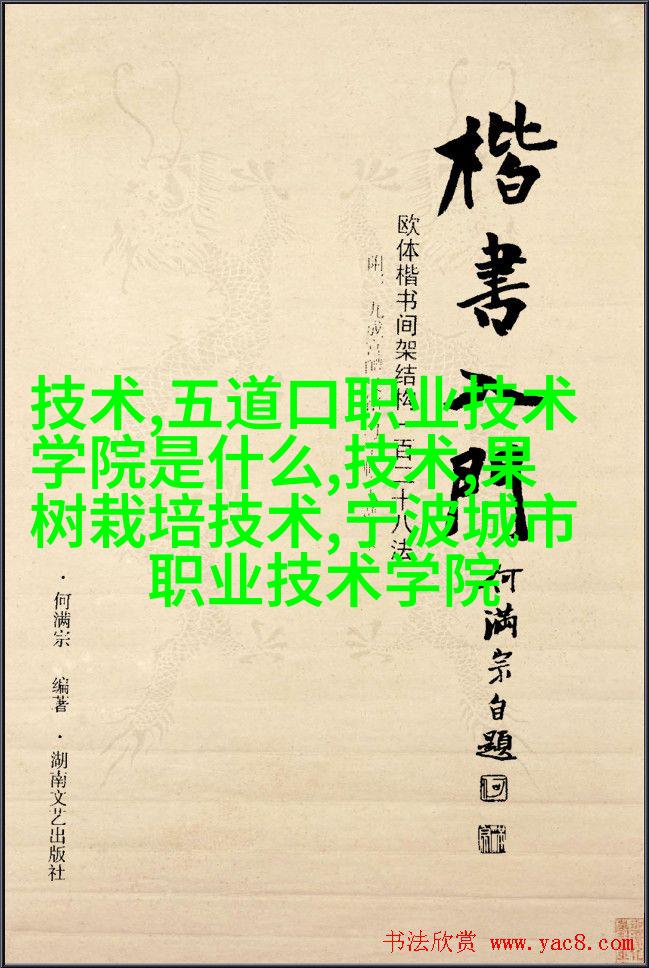 楷書入門
何滿宗自題
欧体楷书间架结构一百二十八法
技术,五道口职业技术
学院是什么,技术,果
树栽培技术,宁波城市
职业技术学院
·何满宗 编著·湖南文艺出版社
书法欣赏 www.yac8.com